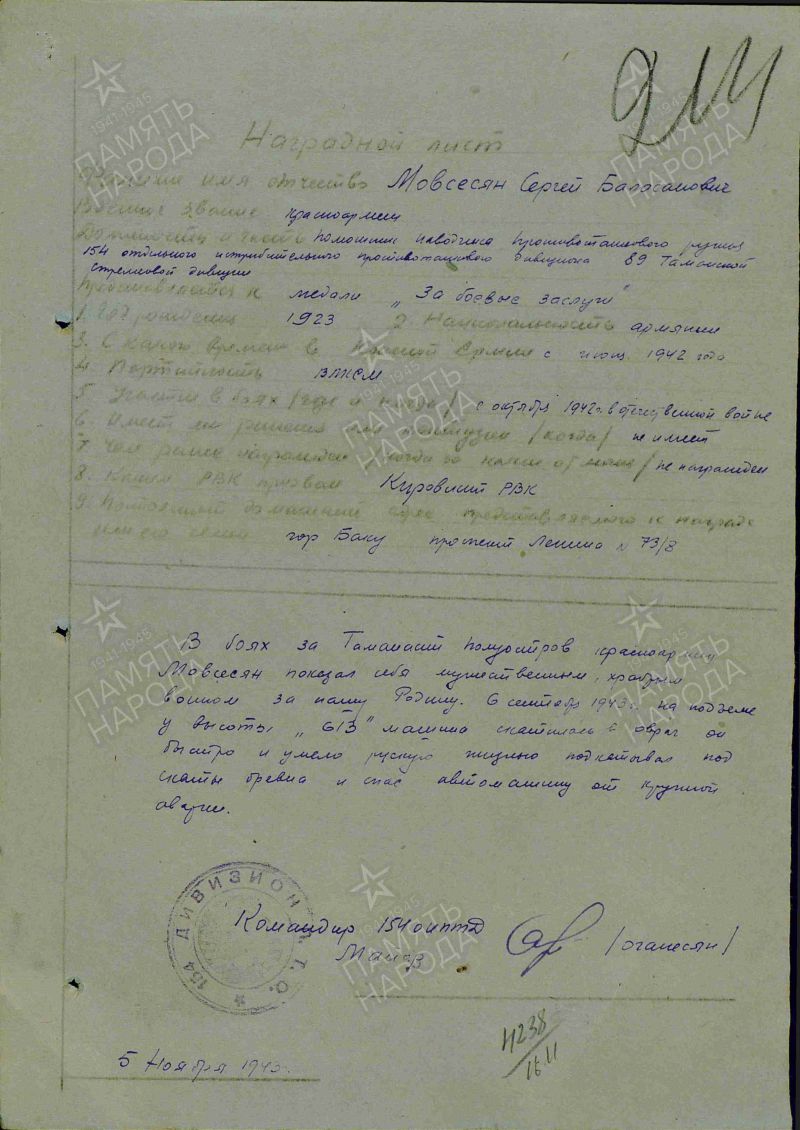 914
Наградной лист
Фамилие имя отчество Мовсесян Сергей Баласанович
Военное звание красноармеец
Должность и часть помошник наводчика противотанкового ружья
154 отдельного истребительного противотанкового дивизиона 89 Таманской
стрелковой дивизии
Представляется к медали „За боевые заслуги"
1. Год рождения 1923 2. Национальность армянин
3. С какого времени в Красной Армии с 1942 года
4. Партийность ВЛКСМ
5. Участие в боях /где и когда/ с октября 1942 г. в отечественной войне
6. Имеет ли ранения или контузии /когда/ не имеет
7. Чем ранее награжден /когда за какие отличия/ не награжден
8. Каким РВК призван Кировский РВК
9. Постоянный домашний адрес представляемого к награде
или его семьи гор Баку проспект Ленина N 73/8
В боях за Таманский полуостров красноармеец
Мовсесян показал себя мужественным, храбрым
воином за нашу Родину. 6 сентября 1943 г. на подъеме
у высоты „613" машина скатилась в овраг он
быстро и умело рискуя жизнью подкатывал под
скаты бревна и спас автомашину от крупной
аварии.
154 ДИВИЗИОН П.Т.О.
Командир 154 оиптд
Майор /Оганесян/
4238
16 11
5 Ноября 1943 г.
1941-1945
ПАМЯТЬ
НАРОДА